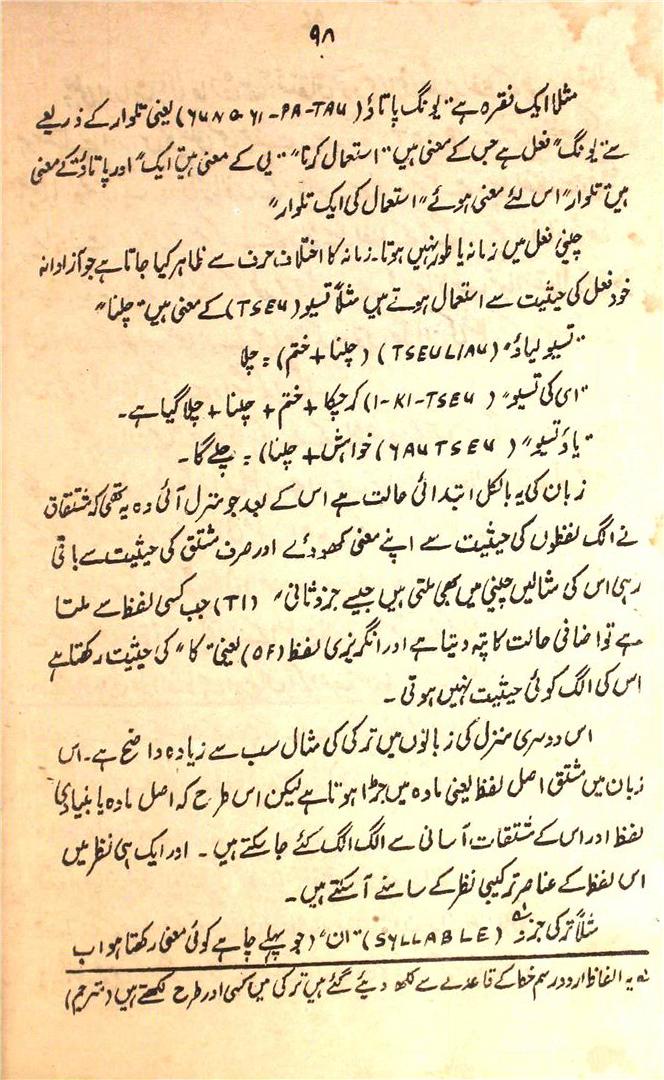 ۹۸
مثلاً ایک فقرہ ہے "یونگ پاتاؤ (YUNG-YI-PA-TAU) یعنی تلوار کے ذریعے
سے "یونگ" فعل ہے جس کے معنی ہیں "استعمال کرنا" "یی کے معنی ہیں "ایک" اور پاتاؤ کے معنی
ہیں "تلوار" اس لئے معنی ہوئے "استعمال کی ایک تلوار"
چینی فعل میں زمانہ یا طور نہیں ہوتا۔ زمانہ کا اختلاف حرف سے ظاہر کیا جاتا ہے جو آزادانہ
خود فعل کی حیثیت سے استعمال ہوتے ہیں مثلاً تسیو (TSEU) کے معنی ہیں "چلنا"
"تسیو لیاؤ" (TSEU LIAU) (چلنا + ختم) = چلا
"ای کی تسیو" (I-KI-TSEU) کر چکا + ختم + چلنا + چلا گیا ہے۔
"یاؤ تسیو" (YAU TSEU) خواہش + چلنا) = چلے گا۔
زبان کی یہ بالکل ابتدائی حالت ہے اس کے بعد جو منزل آئی وہ یہ تھی کہ مشتقات
نے الگ لفظوں کی حیثیت سے اپنے معنی کھو دئے اور صرف مشتق کی حیثیت سے باقی
رہی اس کی مثالیں چینی میں بھی ملتی ہیں جیسے جزو ثانی" (TI) جب کسی لفظ سے ملتا
ہے تو اضافی حالت کا پتہ دیتا ہے اور انگریزی لفظ (OF) یعنی "کا" کی حیثیت رکھتا ہے
اس کی الگ کوئی حیثیت نہیں ہوتی۔
اس دوسری منزل کی زبانوں میں ترکی کی مثال سب سے زیادہ واضح ہے۔ اس
زبان میں مشتق اصل لفظ یعنی مادہ میں جڑا ہوتا ہے لیکن اس طرح کہ اصل مادہ یا بنیادی
لفظ اور اس کے مشتقات آسانی سے الگ الگ کئے جا سکتے ہیں۔ اور ایک ہی نظر میں
اس لفظ کے عناصر ترکیبی نظر کے سامنے آسکتے ہیں۔
مثلاً ترکی جزو ؂۱ (SYLLABLE) "ان" (جو پہلے چاہے کوئی معنی رکھتا ہو اب
؂۱ یہ الفاظ اردو رسم خط کے قاعدے سے لکھ دیئے گئے ہیں ترکی میں کسی اور طرح لکھتے ہیں (مترجم)